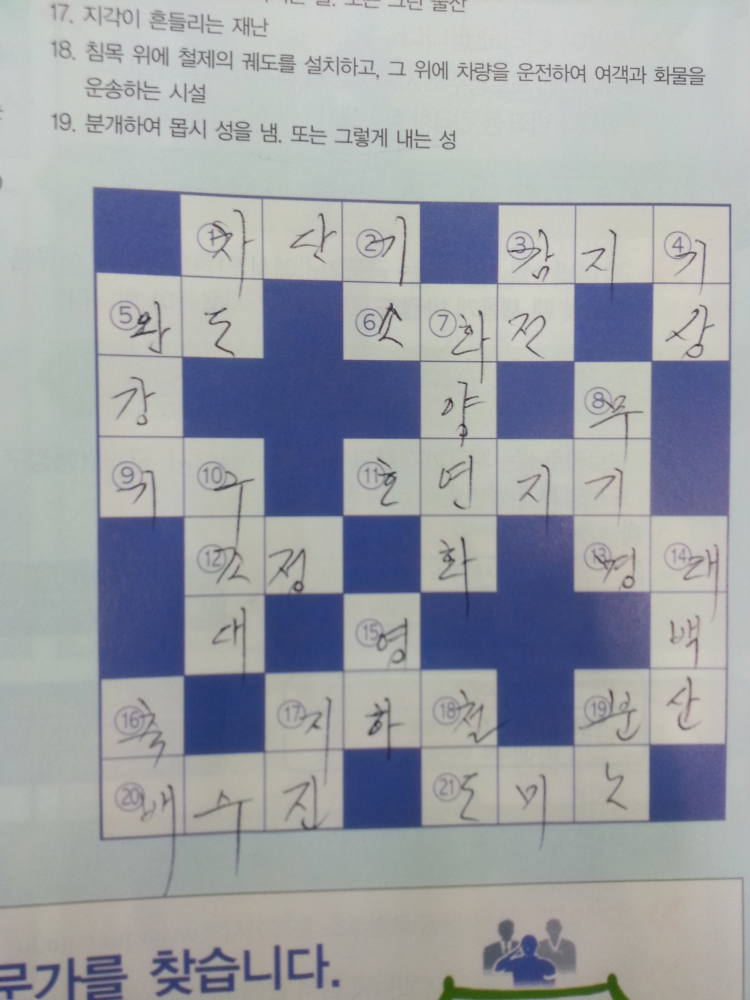 또는 그런 물산
17. 지각이 흔들리는 재난
18. 침목 위에 철제의 궤도를 설치하고, 그 위에 차량을 운전하여 여객과 화물을
운송하는 시설
19. 분개하여 몹시 성을 냄. 또는 그렇게 내는 성
①차 단 ②기 ③감 지 ④기
⑤완 도 ⑥소 ⑦화 전 상
강 양 ⑧무
⑨기 ⑩구 ⑪호 연 지 기
⑫조 정 화 ⑬명 ⑭태
대 ⑮영 백
⑯축 ⑰지 하 ⑱철 ⑲분 산
⑳배 수 진 ㉑도 미 노
무가를 찾습니다.